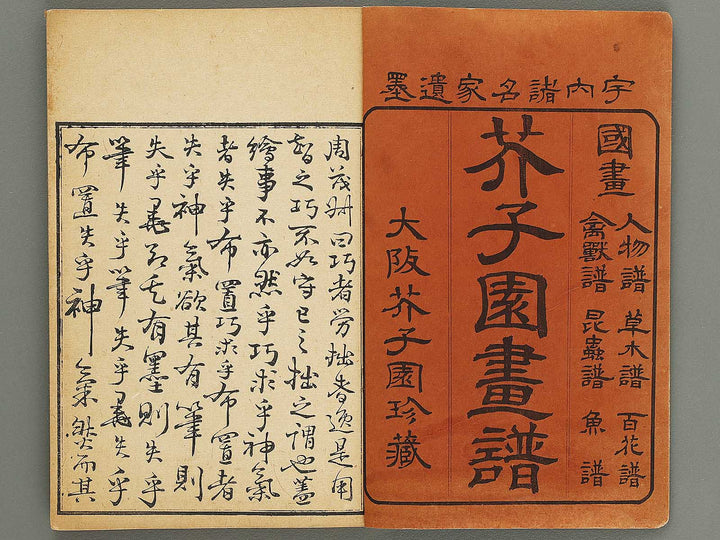 宇内諸名家遺墨
國畫
人物譜 草木譜 百花譜
禽獸譜 昆蟲譜 魚譜
芥子園畫譜
大阪芥子園珍藏
周茂叔曰巧者勞拙者逸是用
智之巧不如守己之拙之謂也蓋
繪事不亦然乎巧求乎神氣
者失乎布置巧求乎布置者
失乎神氣欲其有筆則
失乎墨其有墨則失乎
筆失乎筆失乎墨失乎
布置失乎神氣然而其